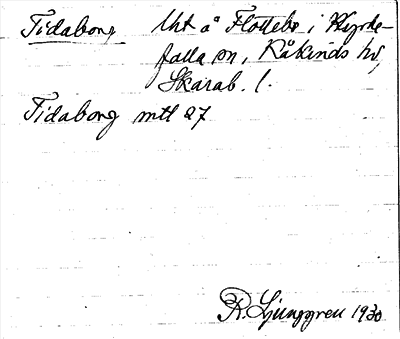 Tidabong Uht å Flottebo i Hyrde-
falla sn, Råkinds hd,
Skarab. l.
Tidabong mtl 27
R. Ljunggren 1930